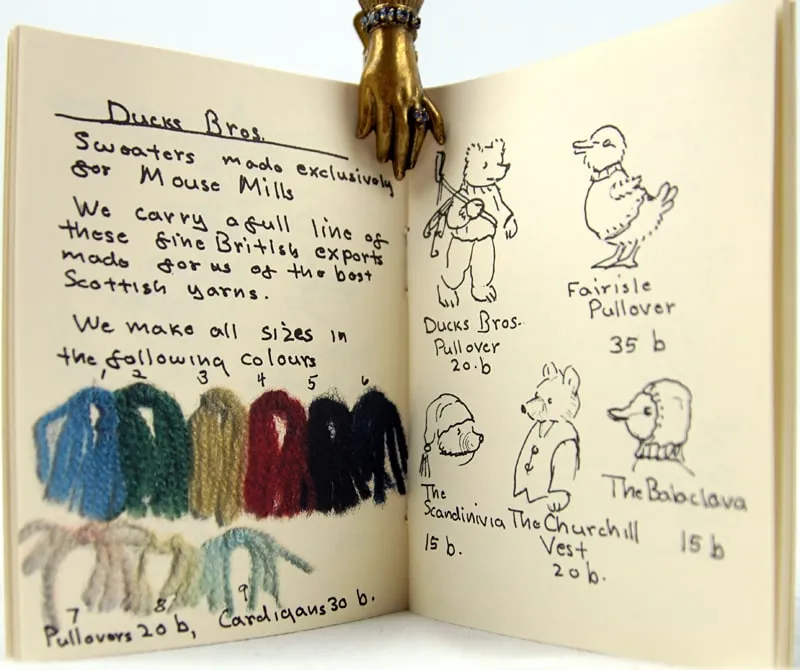 Ducks Bros.
Sweaters made exclusively
for Mouse Mills
We carry a full line of
these fine British exports
made for us of the best
Scottish yarns.
We make all sizes in
the following colours
1 2 3 4 5 6
7 8 9
Pullovers 20 b, Cardigans 30 b.
Ducks Bros.
Pullover
20.b
Fairisle
Pullover
35 b
The
Scandinivia
15 b.
The Churchill
Vest
20 b.
The Babaclava
15 b